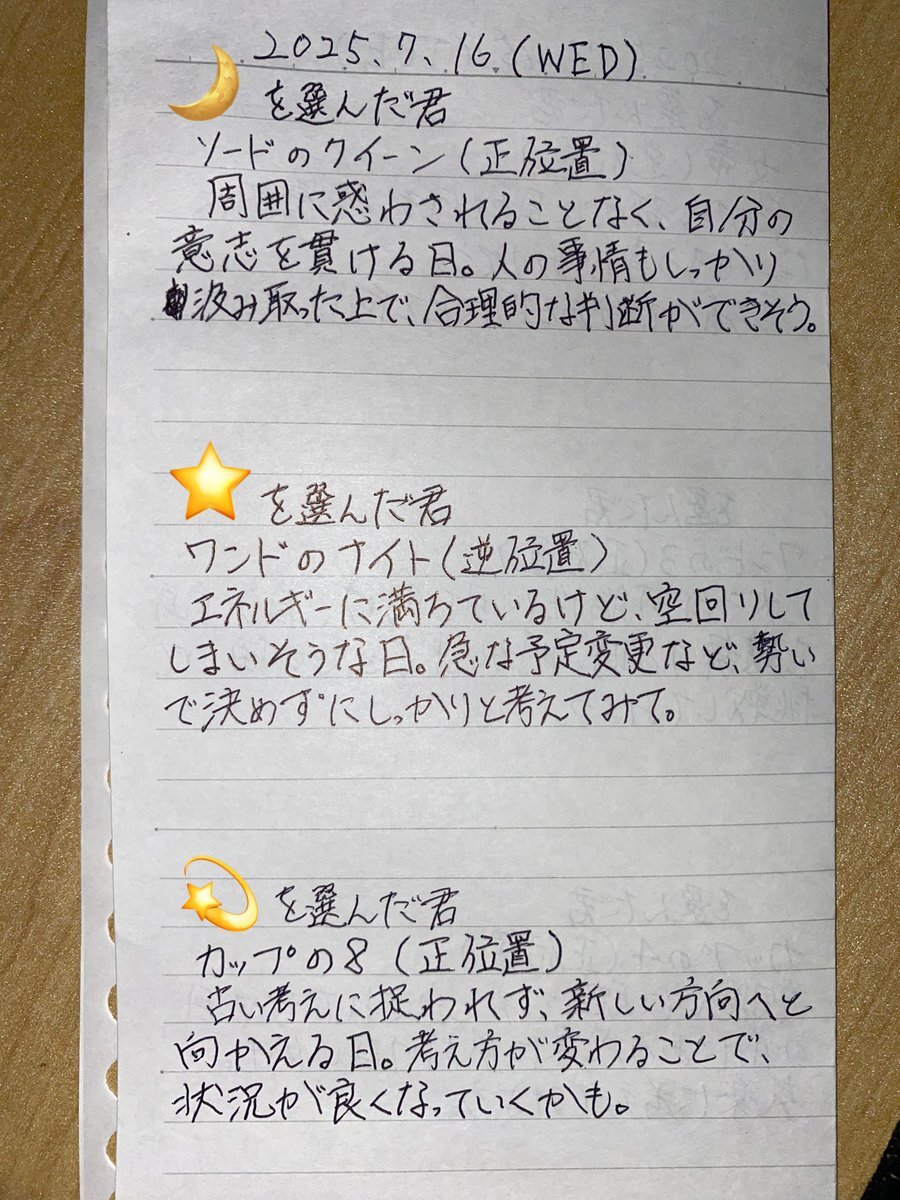 2025.7.16(WED)
🌙を選んだ君
ソードのクイーン(正位置)
周囲に惑わされることなく、自分の
意志を貫ける日。人の事情もしっかり
汲み取った上で、合理的な判断ができそう。
⭐を選んだ君
ワンドのナイト(逆位置)
エネルギーに満ちているけど、空回りして
しまいそうな日。急な予定変更など、勢い
で決めずにしっかりと考えてみて。
💫を選んだ君
カップの8(正位置)
古い考えに捉われず、新しい方向へと
向かえる日。考え方が変わることで、
状況が良くなっていくかも。